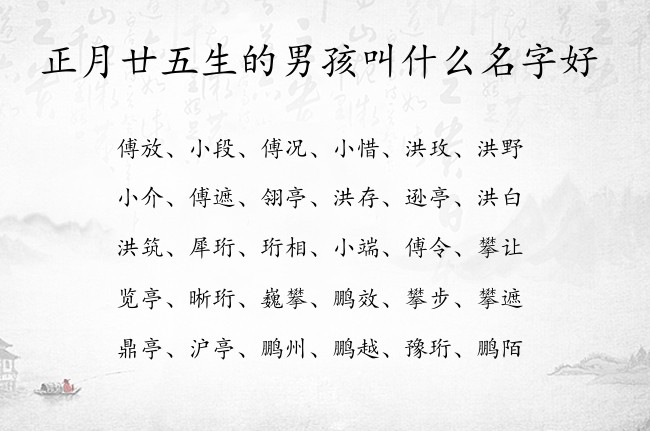 正月廿五生的男孩叫什么名字好
傅放、小段、傅况、小惜、洪玫、洪野
小介、傅遮、翎亭、洪存、逊亭、洪白
洪筑、犀珩、珩相、小端、傅令、攀让
览亭、晰珩、巍攀、鹏效、攀步、攀遮
鼎亭、沪亭、鹏州、鹏越、豫珩、鹏陌